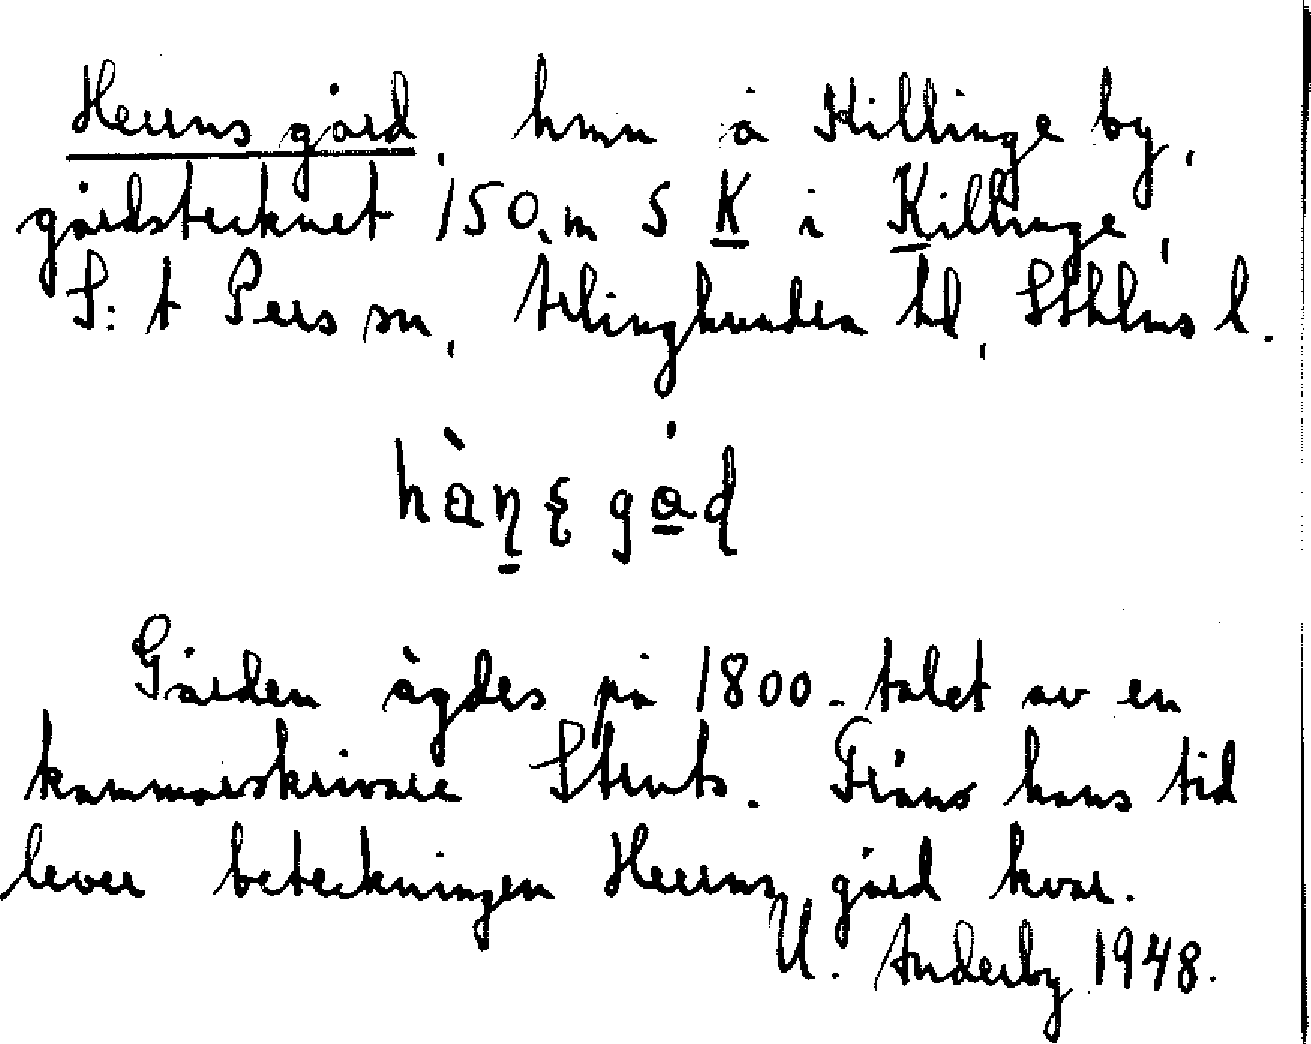 Herrns gård, hmn å Killinge by,
gårdstecknet 150 m S K i Killinge,
S:t Pers sn, Ärlinghundra hd, Sthlms l.
Gården ägdes på 1800-talet av en
kammarskrivare Struts. Fråns hans tid
lever beteckningen Herrns gård kvar.
U. Anderby 1948.